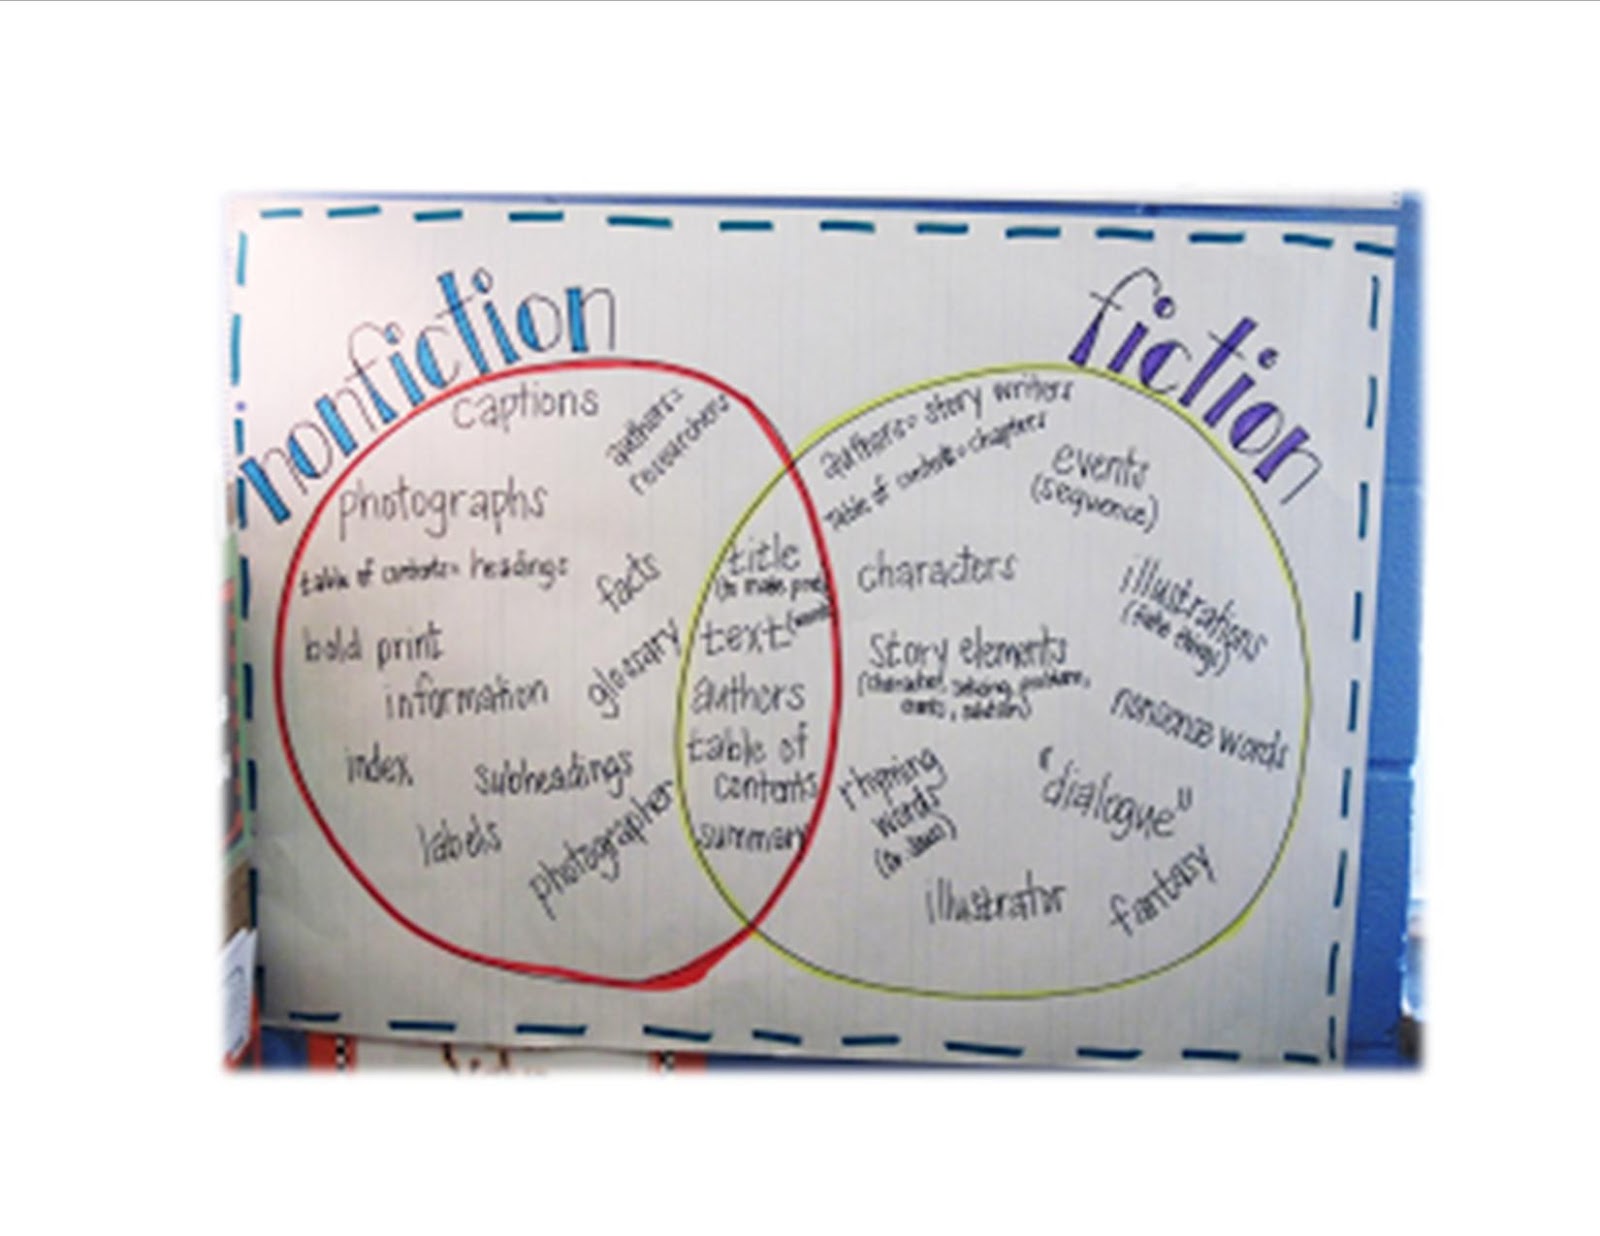 nonfiction
captions
authors=
researchers
photographs
table of contents= headings
facts
bold print
information
glossary
index
subheadings
labels
photographer
title
text
authors
table of
contents
summary
fiction
authors= story writers
table of contents= chapters
events
(sequence)
characters
illustrations
story elements
(character, setting, problem,
nonsense words
rhyming
words
"dialogue"
illustrator
fantasy